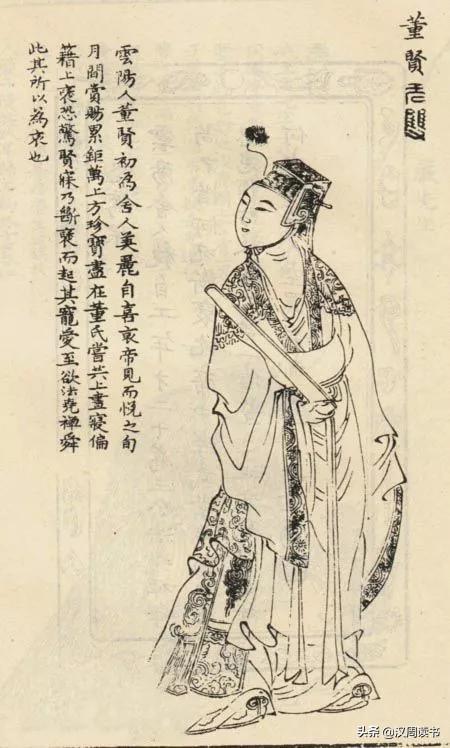 董賢无雙
雲陽人董賢初為舍人美麗自喜哀帝見而悅之旬
月間賞賜累鉅萬上方珍寶盡在董氏嘗共上晝寢偏
籍上褏恐驚賢寐乃斷褏而起其寵愛至欲法堯禪舜
此其所以為哀也
头条 @汉周读书